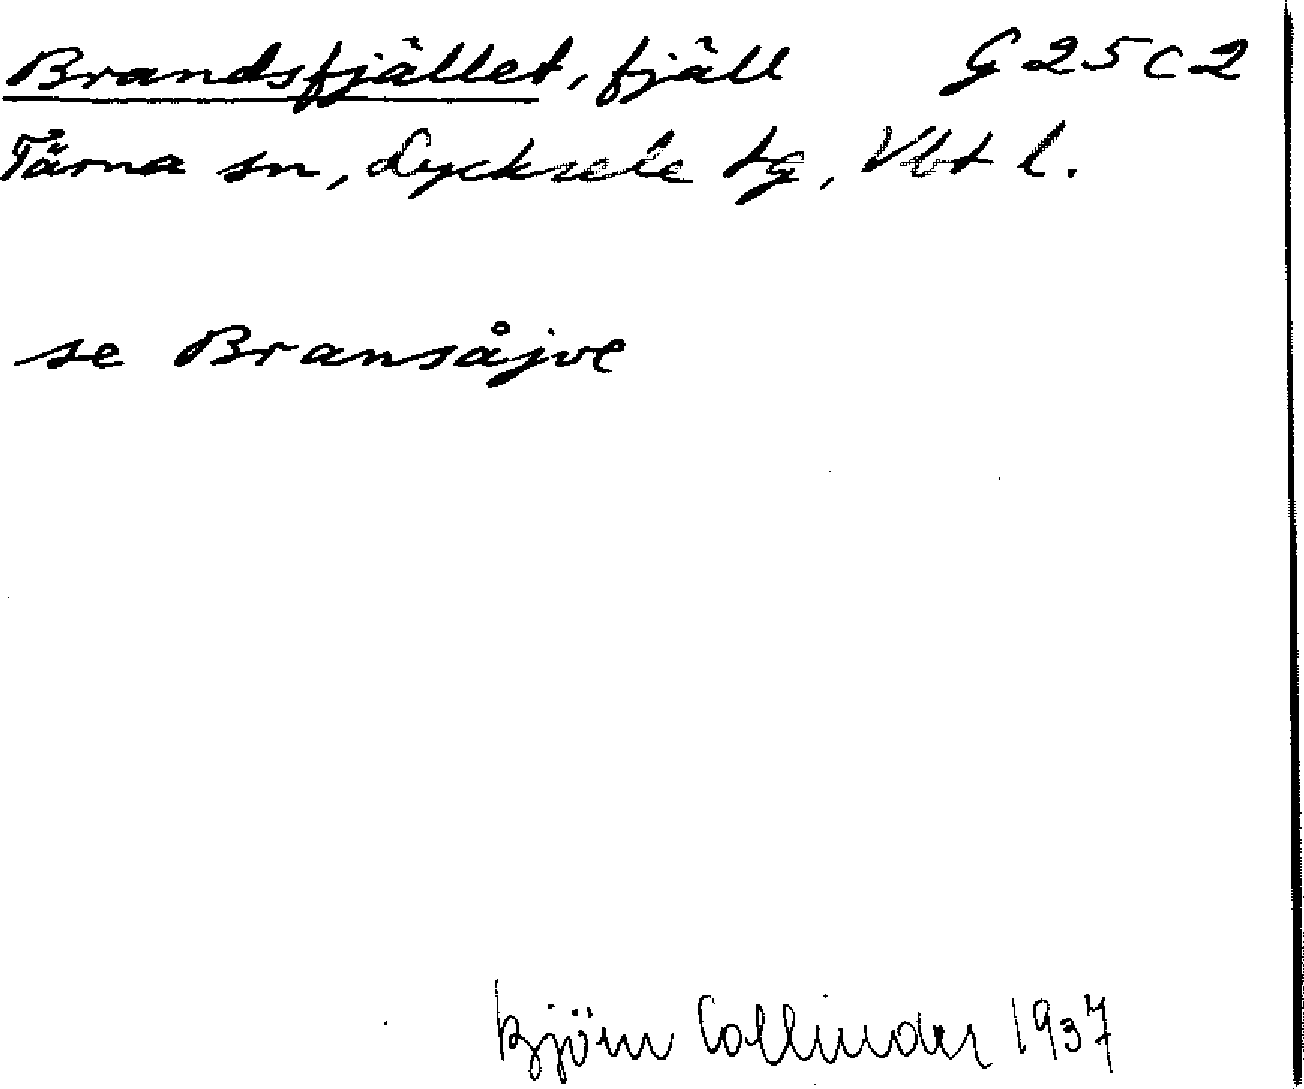 Brandsfjället, fjäll G 25 c 2
Tärna sn, Lycksele tg, Vbt l.
se Bransåjve
Björn Collinder 1937